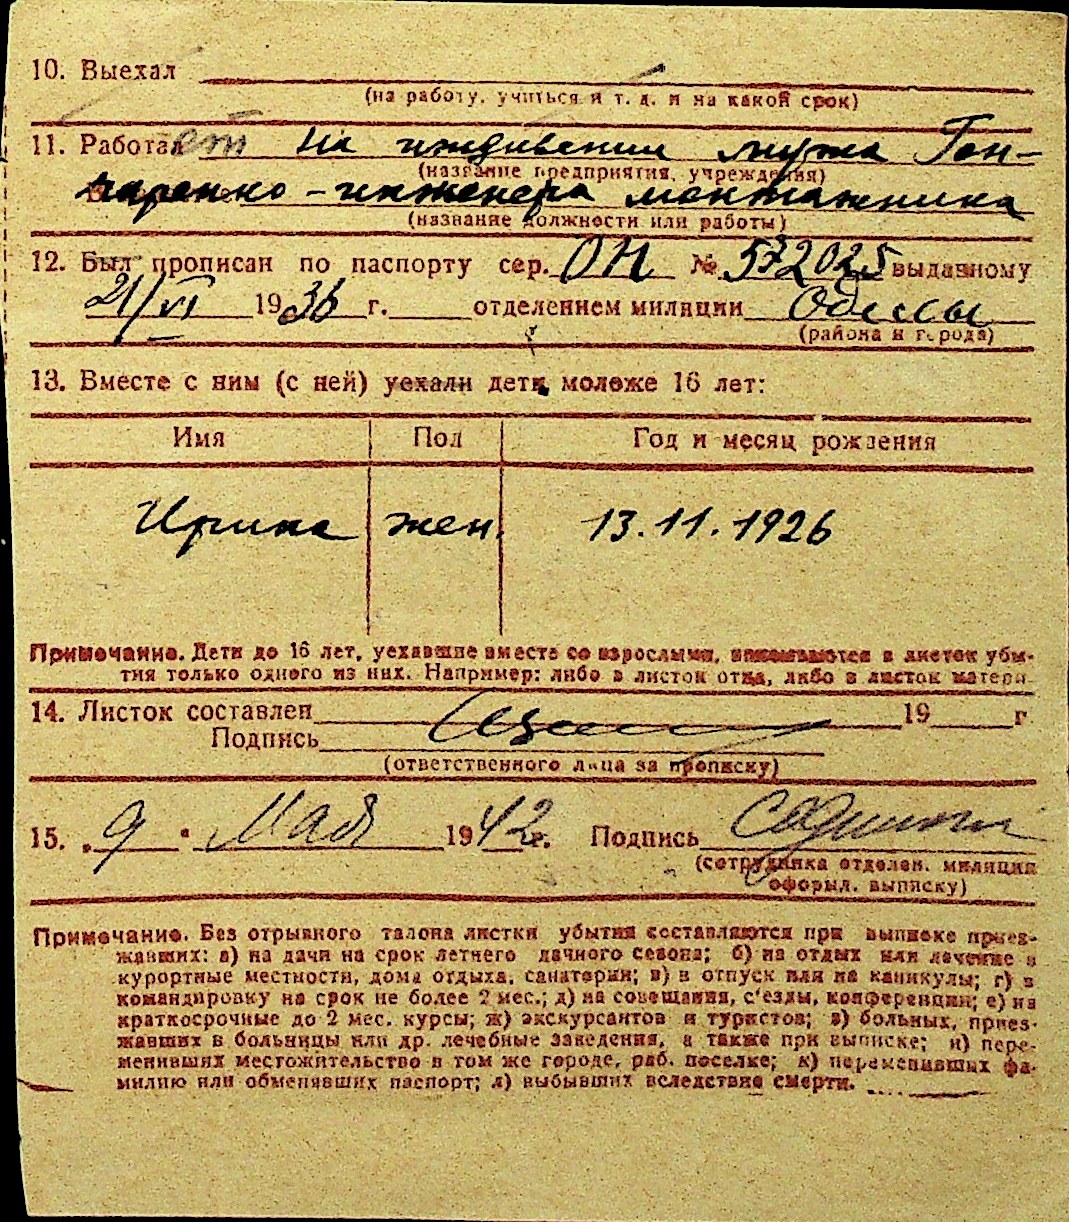 10. Выехал
(на работу, учиться и т. д. и на какой срок)
11. Работает на иждивении мужа Гон-
(название предприятия, учреждения)
чаренко - инженера монтажника
(название должности или работы)
12. Был прописан по паспорту сер. ОН № 572025 выданному
21/VI 1936 г. отделением милиции Одессы
(района и города)
13. Вместе с ним (с ней) уехали дети моложе 16 лет:
Имя Пол Год и месяц рождения
Ирина жен. 13.11.1926
Примечание. Дети до 16 лет, уехавшие вместе со взрослыми, вписываются в листок убы-
тия только одного из них. Например: либо в листок отца, либо в листок матери.
14. Листок составлен 19 г
Подпись
(ответственного лица за прописку)
15. „9" Мая 1942 г. Подпись
(сотрудника отделен. милиции
оформл. выписку)
Примечание. Без отрывного талона листки убытия составляются при выписке приез-
жавших: а) на дачи на срок летнего дачного сезона; б) на отдых или лечение в
курортные местности, дома отдыха, санатории; в) в отпуск или на каникулы; г) в
командировку на срок не более 2 мес.; д) на совещания, с'езды, конференции; е) на
краткосрочные до 2 мес. курсы; ж) экскурсантов и туристов; з) больных, приез-
жавших в больницы или др. лечебные заведения, а также при выписке; и) пере-
менивших местожительство в том же городе, раб. поселке; к) переменивших фа-
милию или обменявших паспорт; л) выбывших вследствие смерти.